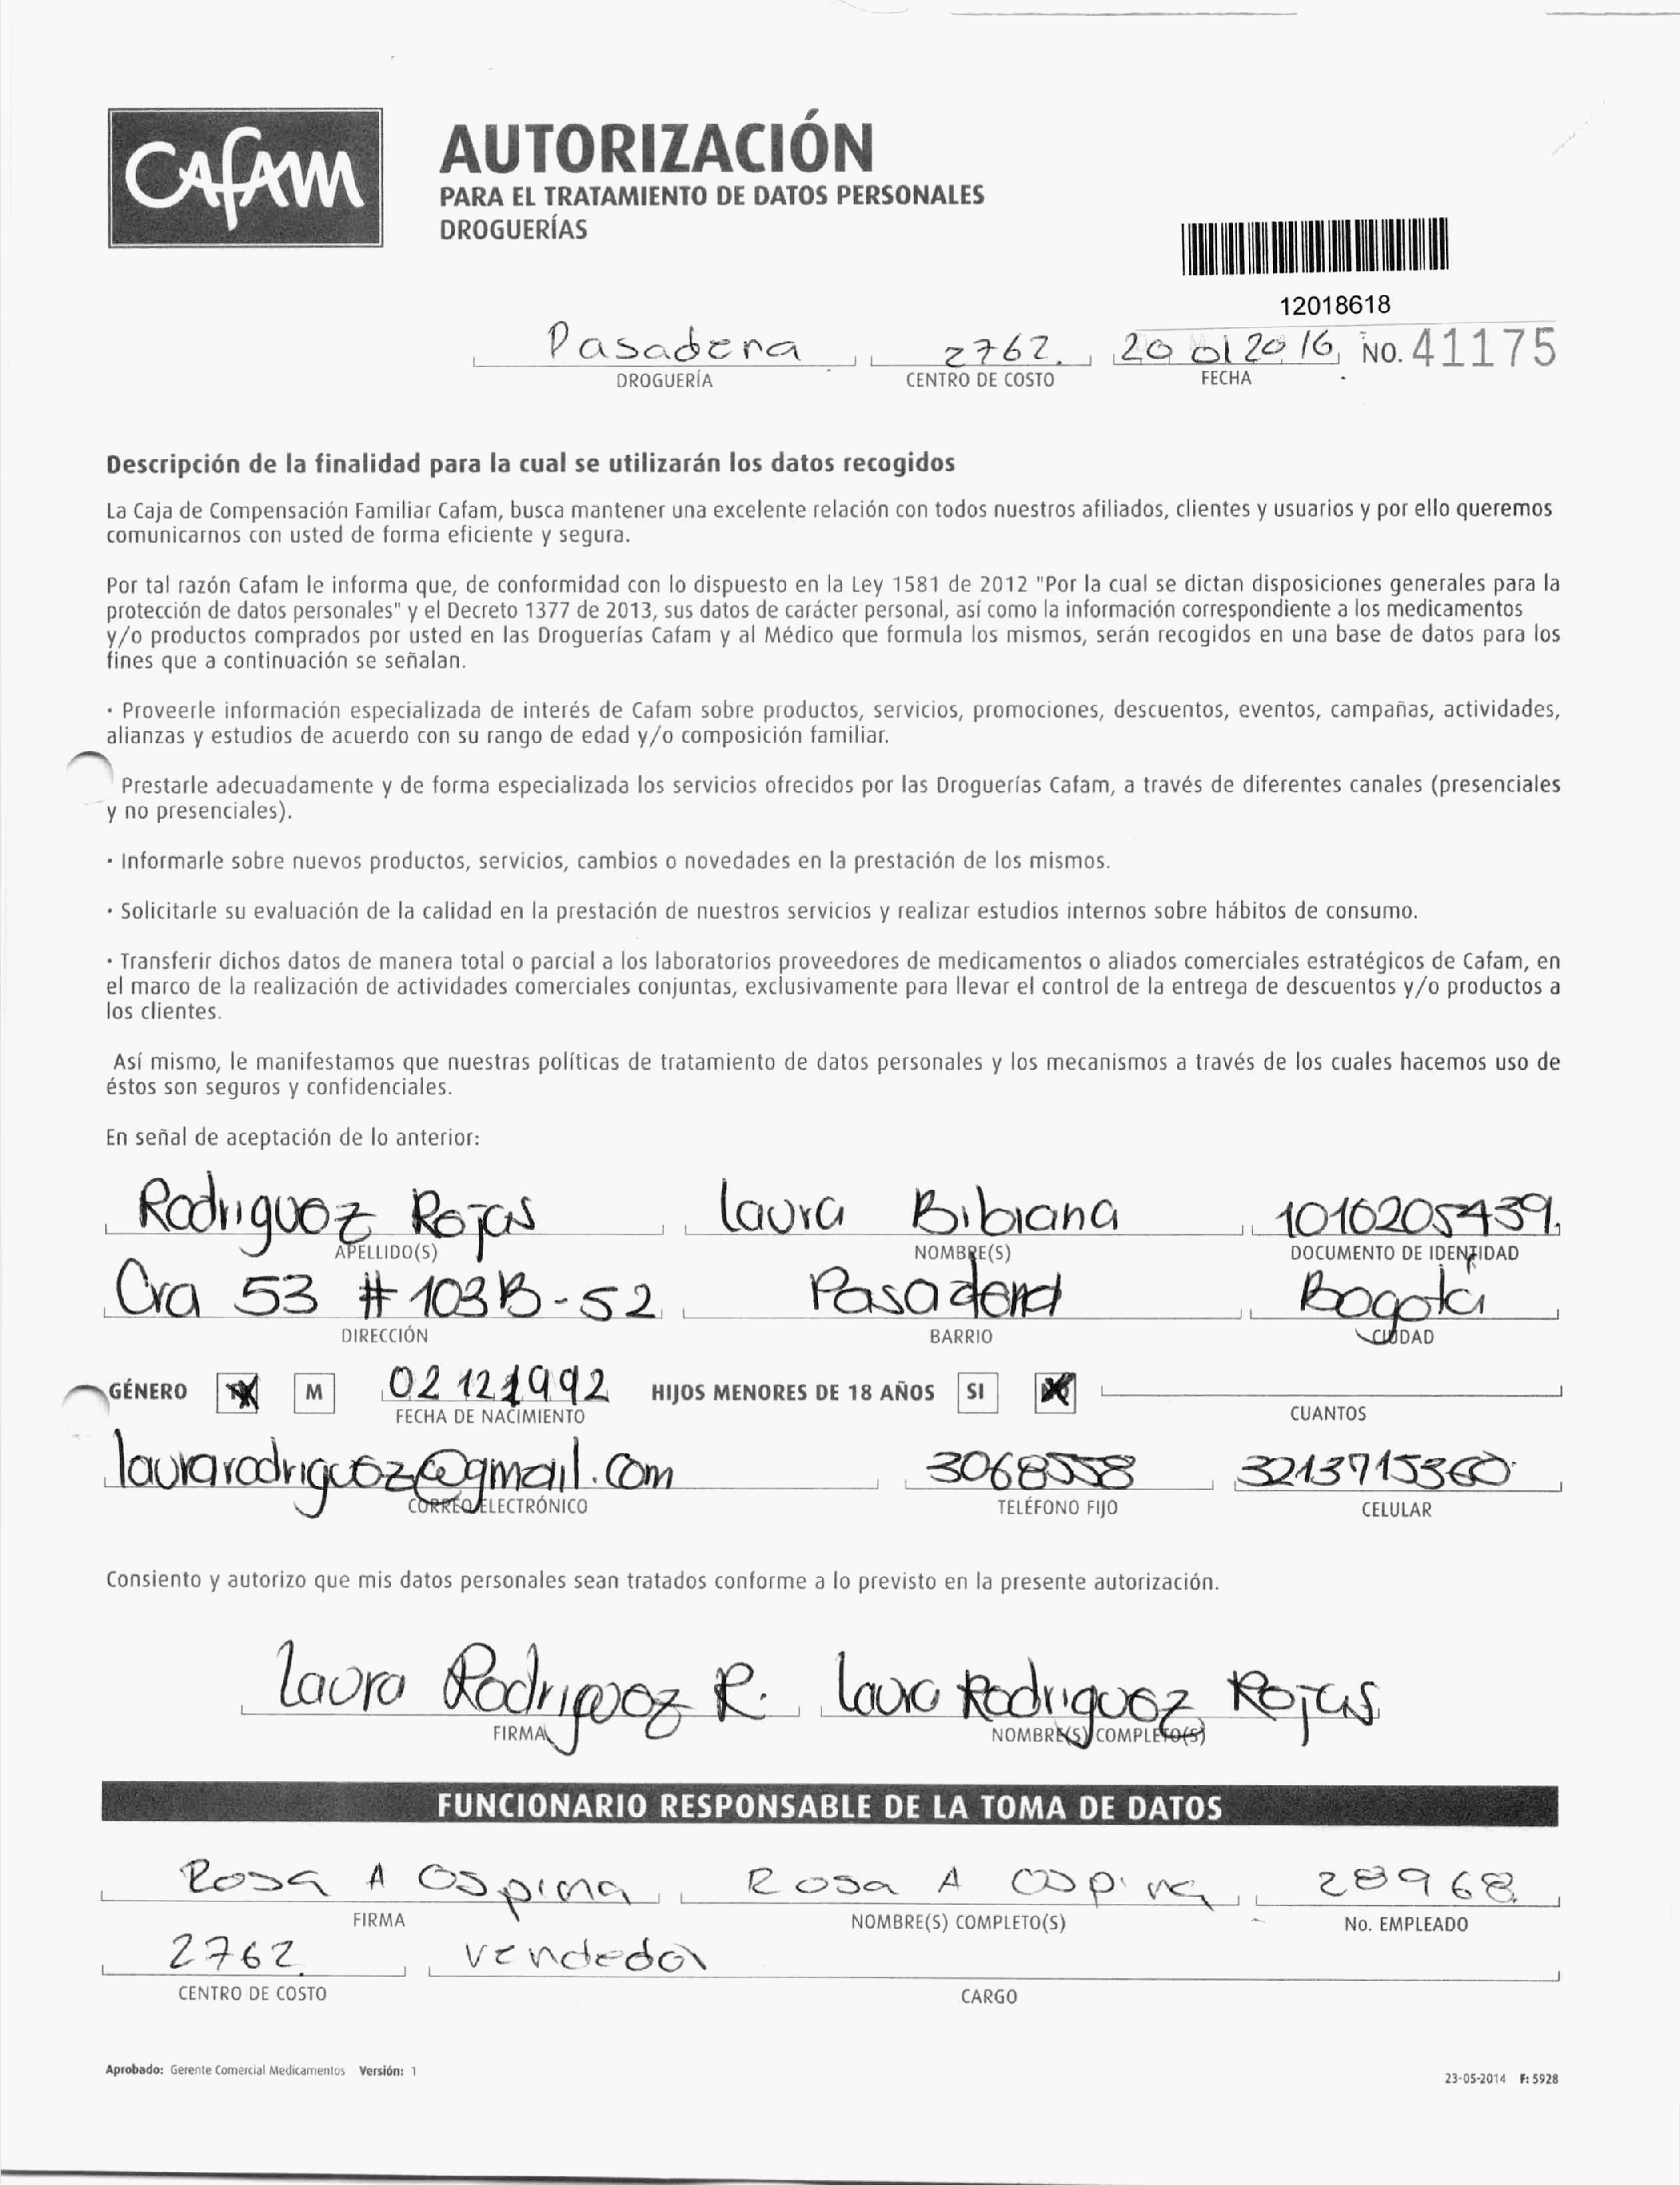 CAFAM
AUTORIZACIÓN
PARA EL TRATAMIENTO DE DATOS PERSONALES
DROGUERÍAS
12018618
Pasadena 2762. 20 01 2016 NO. 41175
DROGUERÍA CENTRO DE COSTO FECHA
Descripción de la finalidad para la cual se utilizarán los datos recogidos
La Caja de Compensación Familiar Cafam, busca mantener una excelente relación con todos nuestros afiliados, clientes y usuarios y por ello queremos
comunicarnos con usted de forma eficiente y segura.
Por tal razón Cafam le informa que, de conformidad con lo dispuesto en la Ley 1581 de 2012 "Por la cual se dictan disposiciones generales para la
protección de datos personales" y el Decreto 1377 de 2013, sus datos de carácter personal, así como la información correspondiente a los medicamentos
y/o productos comprados por usted en las Droguerías Cafam y al Médico que formula los mismos, serán recogidos en una base de datos para los
fines que a continuación se señalan.
· Proveerle información especializada de interés de Cafam sobre productos, servicios, promociones, descuentos, eventos, campañas, actividades,
alianzas y estudios de acuerdo con su rango de edad y/o composición familiar.
Prestarle adecuadamente y de forma especializada los servicios ofrecidos por las Droguerías Cafam, a través de diferentes canales (presenciales
y no presenciales).
· Informarle sobre nuevos productos, servicios, cambios o novedades en la prestación de los mismos.
· Solicitarle su evaluación de la calidad en la prestación de nuestros servicios y realizar estudios internos sobre hábitos de consumo.
· Transferir dichos datos de manera total o parcial a los laboratorios proveedores de medicamentos o aliados comerciales estratégicos de Cafam, en
el marco de la realización de actividades comerciales conjuntas, exclusivamente para llevar el control de la entrega de descuentos y/o productos a
los clientes.
Así mismo, le manifestamos que nuestras políticas de tratamiento de datos personales y los mecanismos a través de los cuales hacemos uso de
éstos son seguros y confidenciales.
En señal de aceptación de lo anterior:
Rodriguez Rojas Laura Bibiana 1016205439.
APELLIDO(S) NOMBRE(S) DOCUMENTO DE IDENTIDAD
Cra 53 # 103B-52 Pasadena Bogotá
DIRECCIÓN BARRIO CIUDAD
GÉNERO M 02 12 1992 HIJOS MENORES DE 18 AÑOS SI
FECHA DE NACIMIENTO CUANTOS
laurarodriguez@gmail.com 3068558 3213715360
CORREO ELECTRÓNICO TELÉFONO FIJO CELULAR
Consiento y autorizo que mis datos personales sean tratados conforme a lo previsto en la presente autorización.
Laura Rodriguez R. Laura Rodriguez Rojas
FIRMA NOMBRE(S) COMPLETO(S)
FUNCIONARIO RESPONSABLE DE LA TOMA DE DATOS
Rosa A Ospina Rosa A Ospina 28968
FIRMA NOMBRE(S) COMPLETO(S) No. EMPLEADO
2762. vendedor
CENTRO DE COSTO CARGO
Aprobado: Gerente Comercial Medicamentos Versión: 1
23-05-2014 F: 5928